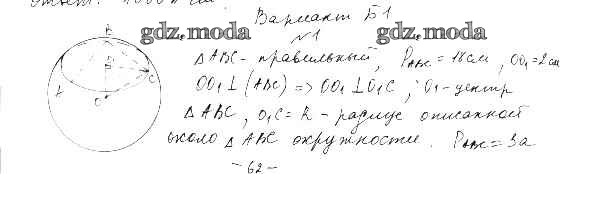 Вариант Б1
gdz.moda gdz.moda
№1
ΔABC - правильный, P_ABC = 18 см, OO₁ = 2 см
OO₁ ⊥ (ABC) => OO₁ ⊥ O₁C, O₁ - центр
ΔABC, O₁C = R - радиус описанной
около ΔABC окружности. P_ABC = 3a
B
A
C
O
- 62 -